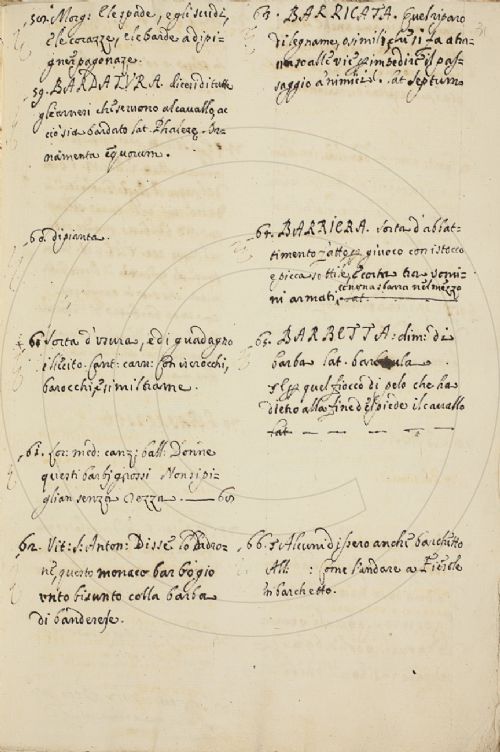 58. Morg: E le spade, e gli scudi,
e le corazze, e le barde a dipi-
gner pagonazze.
59. BARDATURA. dicesi di tutti
gli arnesi che servono al cavallo, ac
ciò sia bardato lat. Phalere. Or-
namenta equorum.
60. di pianta.
61 sorta d'usura, e di guadagno
illecito. Cant: carn: Con iscrocchi,
barocchi, e simil trame.
61. Lor: med: canz: ball: Donne
questi barbigrossi Non si pi-
glian senza 68
62. Vit: S: Anton: Disse lo Ladro-
ne, questo monaco barbogio
unto bisunto colla barba
di banderese.
31
63. BARRICATA. Quel riparo
di legname, o simili che si fa a tra-
verso alle vie per impedire il pas-
saggio a'nimici. lat septum
64. BARRIERA. sorta d'abbat-
timento fatto per giuoco con istocco
e picca sottile, e corta tra uomi-
con una sbarra nel mezzo
ni armati, lat.
65. BARBETTA: dim: di
barba lat. barbula
quel fiocco di pelo che ha
dietro alla fine del piede il cavallo
lat
66. Alcuni dissero anche barchetto
All: : come l'andare a Fiesole
in barchetto.